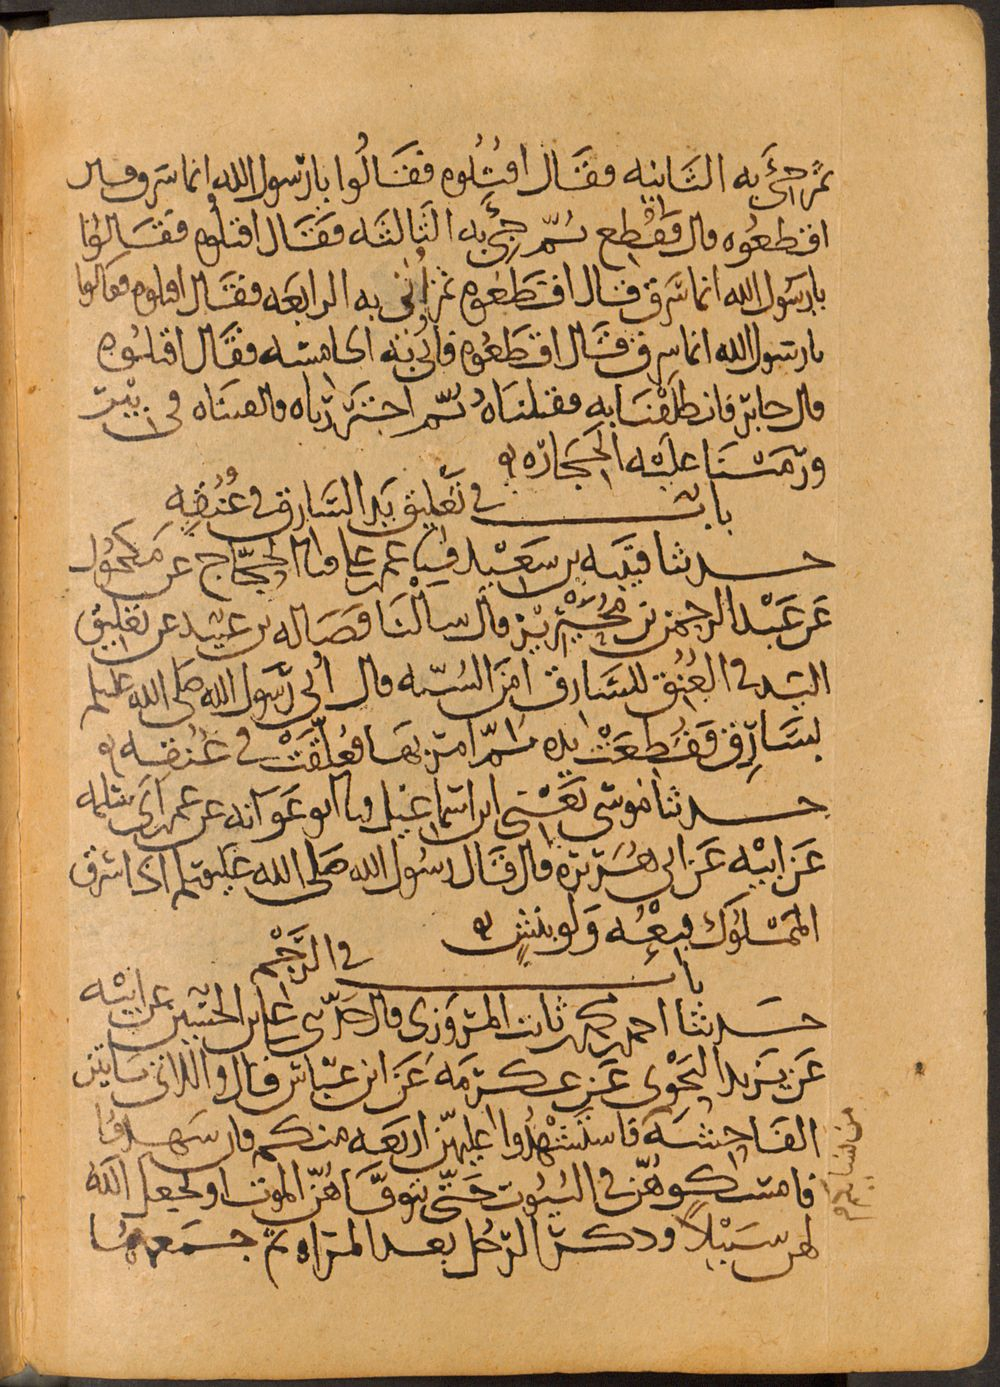 ثم جيء به الثانيه فقال اقتلوه فقالوا يا رسول الله انما سرق قال
اقطعوه قال فقطع ثم جيء به الثالثه فقال اقتلوه فقالوا
يا رسول الله انما سرق قال اقطعوه ثم اتي به الرابعه فقال اقتلوه فقالوا
يا رسول الله انما سرق قال اقطعوه فاتي به الخامسه فقال اقتلوه
قال جابر فانطلقنا به فقتلناه ثم اجتررناه فالقيناه في بئر
ورمينا عليه الحجاره
باب في تعليق يد السارق في عنقه
حدثنا قتيبه بن سعيد نا عمر بن علي نا الحجاج عن مكحول
عن عبد الرحمن بن محيريز قال سالنا فضاله بن عبيد عن تعليق
اليد في العنق للسارق امن السنه قال اتي رسول الله صلى الله عليه وسلم
بسارق فقطعت يده ثم امر بها فعلقت في عنقه
حدثنا موسى يعني ابن اسماعيل نا ابو عوانه عن عمر بن ابي سلمه
عن ابيه عن ابي هريره قال قال رسول الله صلى الله عليه وسلم اذا سرق
المملوك فبعه ولو بنش
باب في الرجم
حدثنا احمد بن محمد بن ثابت المروزي قال حدثني علي بن الحسين عن ابيه
عن يزيد النحوي عن عكرمه عن ابن عباس قال واللاتي ياتين
الفاحشه فاستشهدوا عليهن اربعه منكم فان شهدوا
فامسكوهن في البيوت حتى يتوفاهن الموت او يجعل الله
لهن سبيلا وذكر الرجل بعد المراه ثم جمعهما
من نسايكم